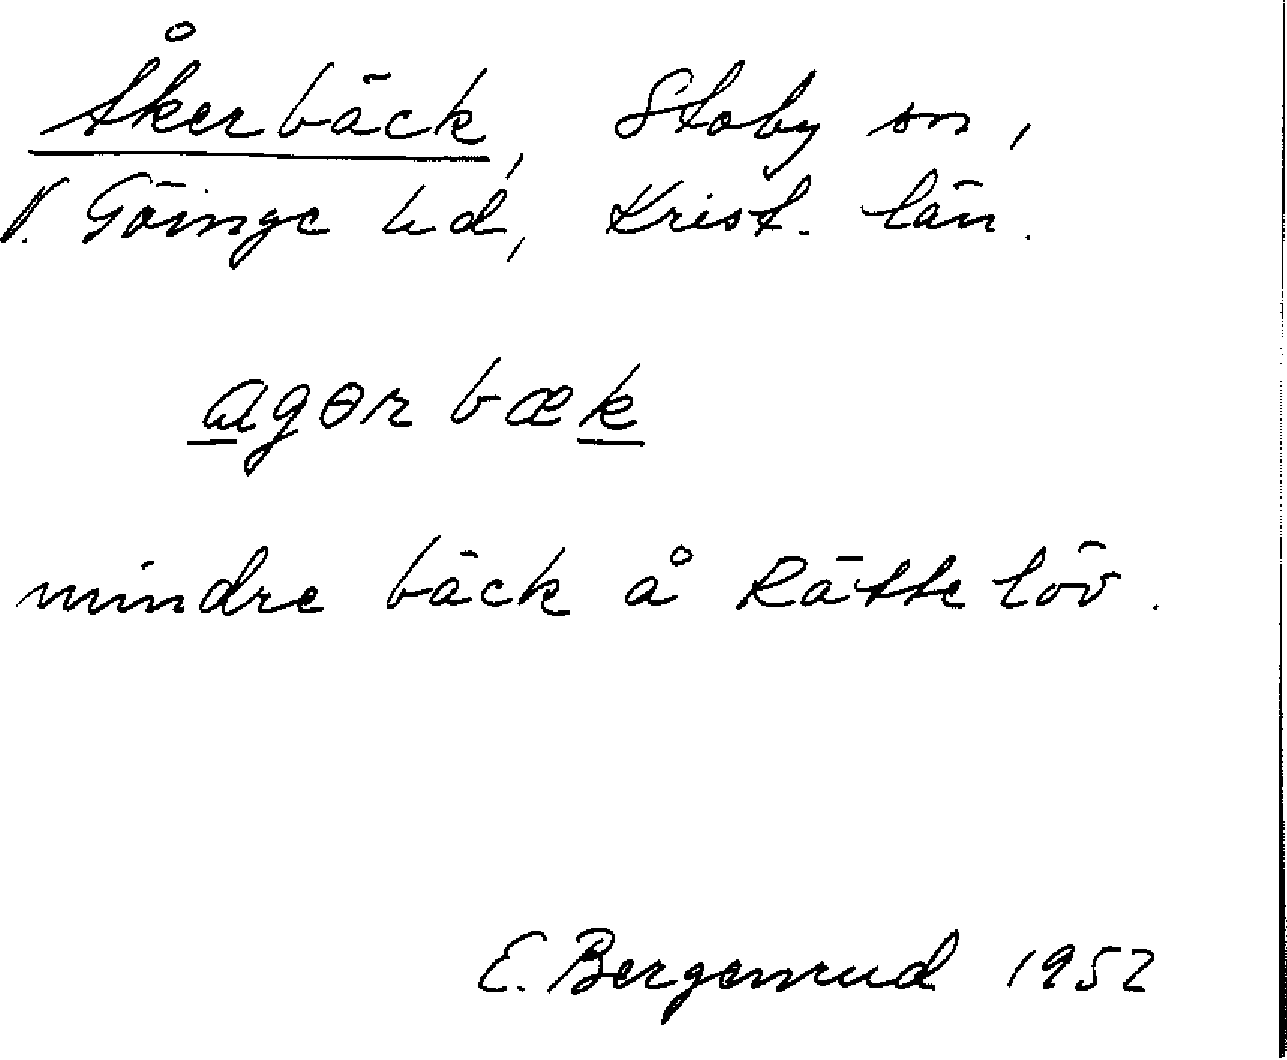 Åkerbäck, Stoby sn,
V. Göinge hd, Krist. län.
agərbæk
mindre bäck å Rättelöv.
E. Bergenrud 1952